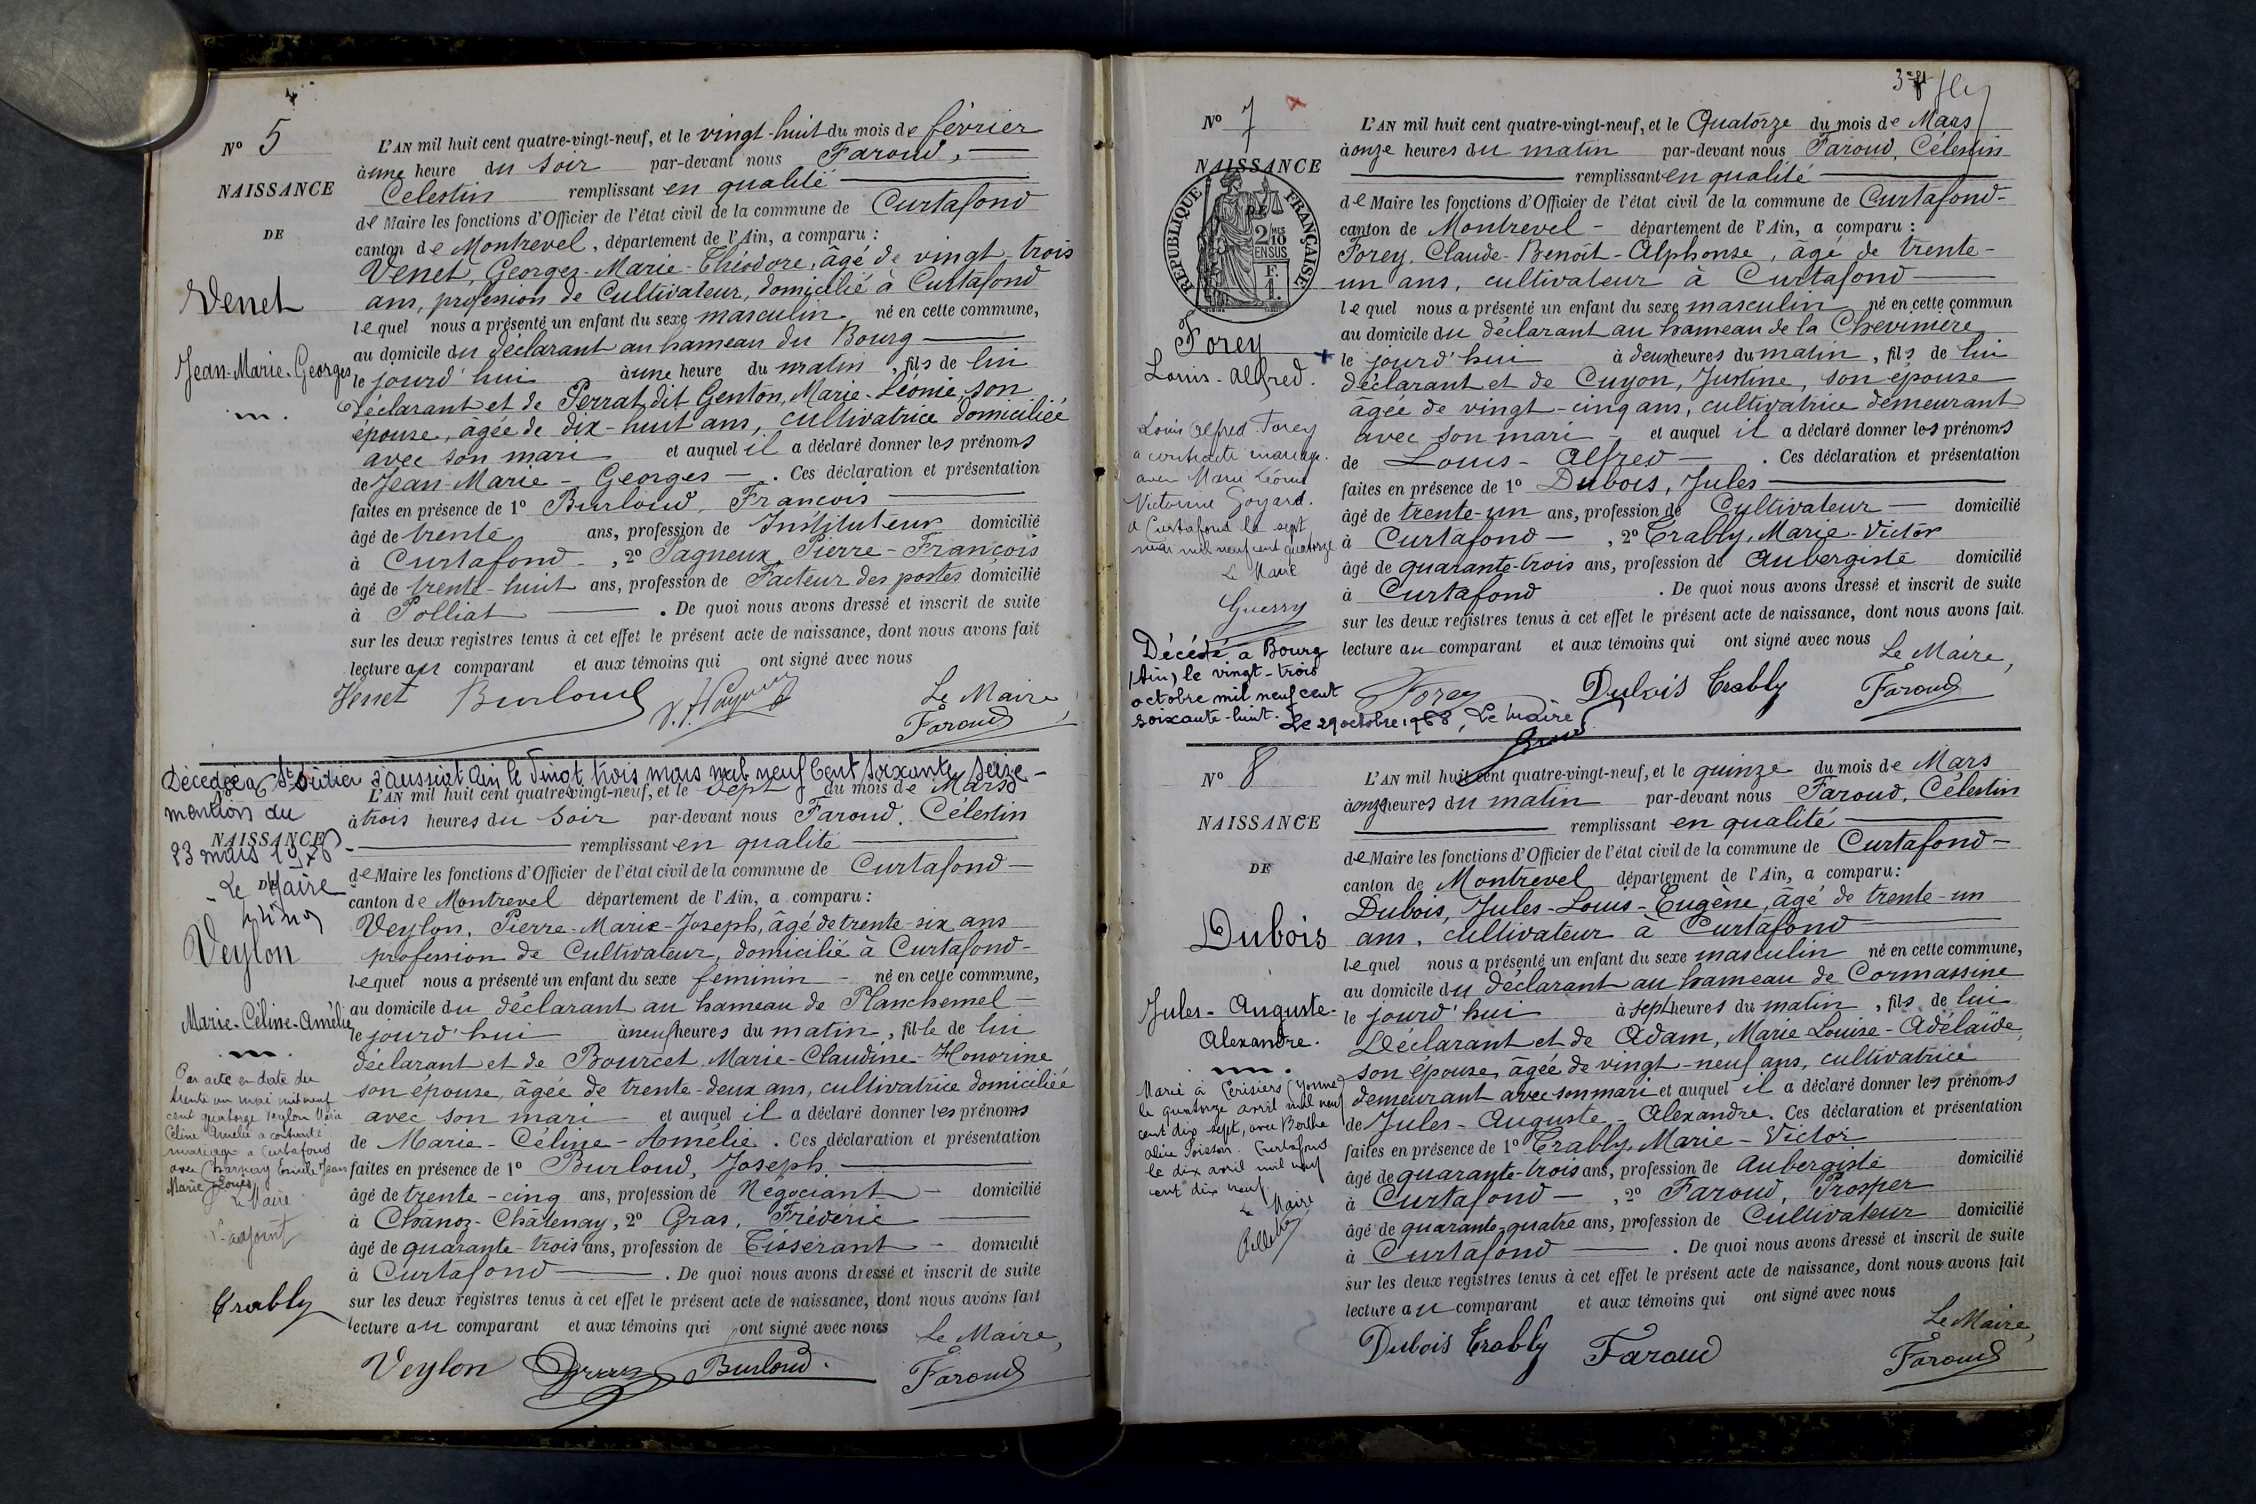 N° 5
NAISSANCE
DE
Venet
Jean-Marie-Georges
L'AN mil huit cent quatre-vingt-neuf, et le vingt-huit du mois de février
à une heure du soir par-devant nous Faroud,
Célestin remplissant en qualité
de Maire les fonctions d'Officier de l'état civil de la commune de Curtafond
canton de Montrevel, département de l'Ain, a comparu :
Venet, Georges-Marie-Théodore, âgé de vingt-trois
ans, profession de Cultivateur, domicilié à Curtafond
lequel nous a présenté un enfant du sexe masculin né en cette commune,
au domicile du déclarant au hameau du Bourg
le jourd'hui à une heure du matin, fils de lui
déclarant et de Perrat dit Genton, Marie-Léonie, son
épouse, agée de dix-huit ans, cultivatrice domiciliée
avec son mari et auquel il a déclaré donner les prénoms
de Jean-Marie-Georges. Ces déclaration et présentation
faites en présence de 1° Burloud, François
âgé de trente ans, profession de Instituteur domicilié
à Curtafond, 2° Pagneux, Pierre-François
âgé de trente-huit ans, profession de Facteur des postes domicilié
à Polliat. De quoi nous avons dressé et inscrit de suite
sur les deux registres tenus à cet effet le présent acte de naissance, dont nous avons fait
lecture au comparant et aux témoins qui ont signé avec nous
Venet Burloud
Le Maire,
Faroud
Décédée à St Didier d'aussiat Ain le vingt trois mars mil neuf Cent soixante seize
mention du
23 mars 1976
Le Maire
NAISSANCE
DE
Veylon
Marie-Céline-Amélie
Par acte en date du
trente un mai mil neuf
cent quatorze Veylon Marie
Céline Amélie a contracté
mariage à Curtafond
avec Charnay Emile Jean
Marie Louis
Le Maire
adjoint
Trably
L'AN mil huit cent quatre-vingt-neuf, et le sept du mois de Mars
à trois heures du soir par-devant nous Faroud, Célestin
remplissant en qualité
de Maire les fonctions d'Officier de l'état civil de la commune de Curtafond
canton de Montrevel département de l'Ain, a comparu :
Veylon, Pierre-Marie-Joseph, âgé de trente-six ans
profession de Cultivateur, domicilié à Curtafond
lequel nous a présenté un enfant du sexe féminin né en cette commune,
au domicile du déclarant au hameau de Planchemel
le jourd'hui à neuf heures du matin, fille de lui
déclarant et de Bourcet Marie-Claudine-Honorine
son épouse, âgée de trente-deux ans, cultivatrice domiciliée
avec son mari et auquel il a déclaré donner les prénoms
de Marie-Céline-Amélie. Ces déclaration et présentation
faites en présence de 1° Burloud, Joseph.
âgé de trente-cinq ans, profession de Négociant domicilié
à Chanoz-Châtenay, 2° Gras, Fréderic
âgé de quarante-trois ans, profession de Tisserant domicilié
à Curtafond. De quoi nous avons dressé et inscrit de suite
sur les deux registres tenus à cet effet le présent acte de naissance, dont nous avons fait
lecture au comparant et aux témoins qui ont signé avec nous
Le Maire,
Veylon Gras Burloud.
Faroud
N° 7
NAISSANCE
DE
RÉPUBLIQUE FRANÇAISE
2/10 EN SUS
Forey
Louis-Alfred.
Louis Alfred Forey
a contracté mariage
avec Marie Léonie
Victorine Goyard.
à Curtafond le sept
mars mil neuf cent quatorze
Le Maire
Guerry
Décédé à Bourg
(Ain) le vingt-trois
octobre mil neuf cent
soixante-huit.
Le 29 octobre 1968, Le Maire
L'AN mil huit cent quatre-vingt-neuf, et le Quatorze du mois de Mars
à onze heures du matin par-devant nous Faroud, Célestin
remplissant en qualité
de Maire les fonctions d'Officier de l'état civil de la commune de Curtafond-
canton de Montrevel - département de l'Ain, a comparu :
Forey, Claude-Benoît-Alphonse, âgé de trente-
un ans, cultivateur à Curtafond
lequel nous a présenté un enfant du sexe masculin né en cette commun
au domicile du déclarant au hameau de la Chevinière
le jourd'hui à deux heures du matin, fils de lui
déclarant et de Cuyon, Justine, son épouse
âgée de vingt-cinq ans, cultivatrice demeurant
avec son mari et auquel il a déclaré donner les prénoms
de Louis-Alfred. Ces déclaration et présentation
faites en présence de 1° Dubois, Jules
âgé de trente-un ans, profession de Cultivateur domicilié
à Curtafond, 2° Trably, Marie-Victor
âgé de quarante-trois ans, profession de Aubergiste domicilié
à Curtafond. De quoi nous avons dressé et inscrit de suite
sur les deux registres tenus à cet effet le présent acte de naissance, dont nous avons fait
lecture au comparant et aux témoins qui ont signé avec nous
Le Maire,
Forey Dubois Trably Faroud
N° 8
NAISSANCE
DE
Dubois
Jules-Auguste-
Alexandre.
Marié à Cerisiers (Yonne)
le quatorze avril mil neuf
cent dix sept, avec Berthe
Alice Poisson. Curtafond
le dix avril mil neuf
cent dix neuf.
Le Maire
L'AN mil huit cent quatre-vingt-neuf, et le quinze du mois de Mars
à onze heures du matin par-devant nous Faroud, Célestin
remplissant en qualité
de Maire les fonctions d'Officier de l'état civil de la commune de Curtafond-
canton de Montrevel département de l'Ain, a comparu :
Dubois, Jules-Louis-Eugène, âgé de trente-un
ans, cultivateur à Curtafond
lequel nous a présenté un enfant du sexe masculin né en cette commune,
au domicile du déclarant au hameau de Cormassine
le jourd'hui à sept heures du matin, fils de lui
Déclarant et de Adam, Marie Louise-Adélaïde
son épouse, âgée de vingt-neuf ans, cultivatrice
demeurant avec son mari et auquel il a déclaré donner les prénoms
de Jules-Auguste-Alexandre. Ces déclaration et présentation
faites en présence de 1° Trably, Marie-Victor
âgé de quarante-trois ans, profession de Aubergiste domicilié
à Curtafond, 2° Faroud, Prosper
âgé de quarante-quatre ans, profession de Cultivateur domicilié
à Curtafond. De quoi nous avons dressé et inscrit de suite
sur les deux registres tenus à cet effet le présent acte de naissance, dont nous avons fait
lecture au comparant et aux témoins qui ont signé avec nous
Le Maire,
Dubois Trably Faroud
Faroud